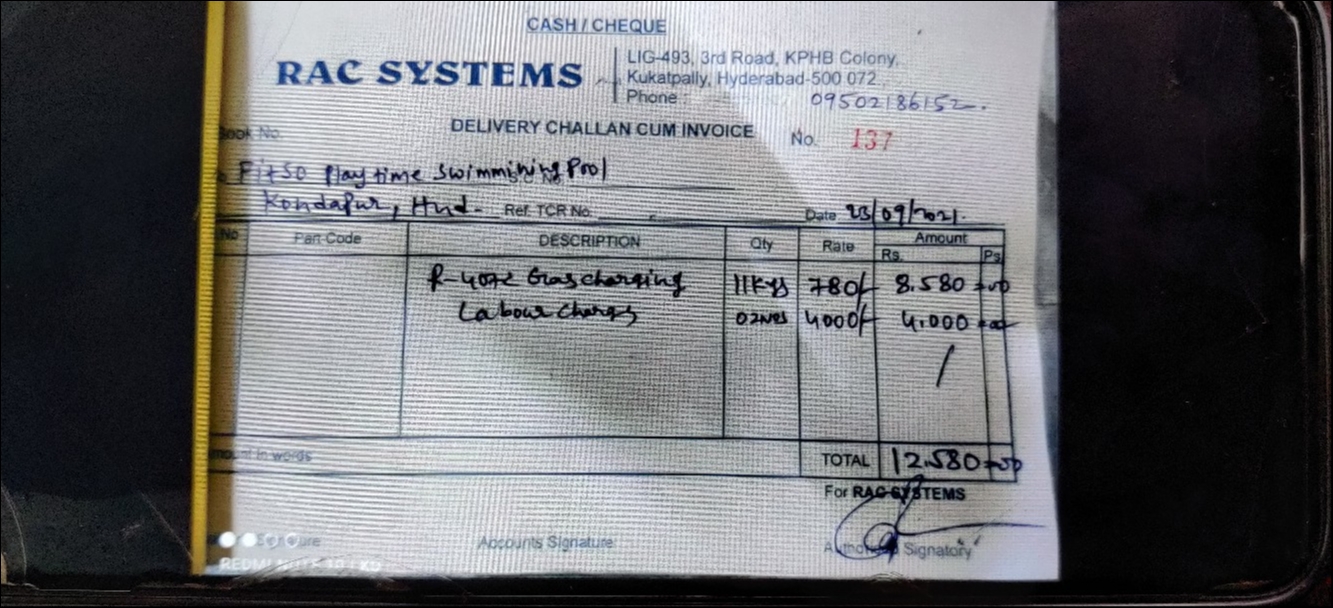 CASH / CHEQUE
RAC SYSTEMS
LIG-493, 3rd Road, KPHB Colony,
Kukatpally, Hyderabad-500 072
Phone : 09502186152.
Book No.
DELIVERY CHALLAN CUM INVOICE No. 137
Fitso Playtime Swimmining Pool
Kondapur, Hyd. Ref. TCR No. Date 23/09/2021.
No Part Code DESCRIPTION Qty Rate Amount
Rs. Ps.
R-407c Gas charging 11Kgs 780/- 8.580
Labour Charges 02Nos 4000/- 4.000
Amount in words TOTAL 12.580
For RAC SYSTEMS
Signature Accounts Signature Authorised Signatory